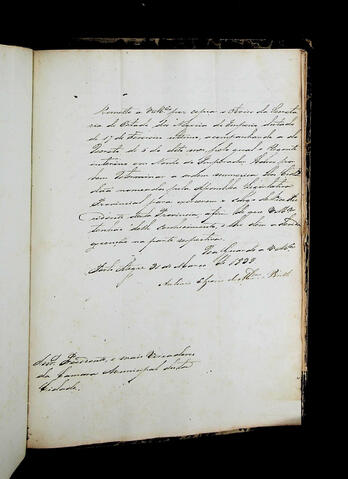 Remetto a Vmces por copia o Aviso da Secreta
ria de Estado dos Negocios do Imperio datado
de 17 de Fevereiro ultimo, acompanhando o do
Decreto de 6 do dito mez, pelo qual o Regente
interino em Nome do Imperador Houve por
bem determinar a ordem numerica dos Cida
dãos nomeados pela Assemblea Legislativa
Provincial para exercerem o cargo de Vice Pre
sidente desta Provincia, afim de que Vmces
tenhão delle conhecimento, e lhe dem a devida
execução na parte respectiva.
Deos Guarde a Vmces
Porto Alegre 31 de Março de 1838
Antonio
Snrs. Presidente, e mais Vereadores
da Camara Municipal desta
Cidade.